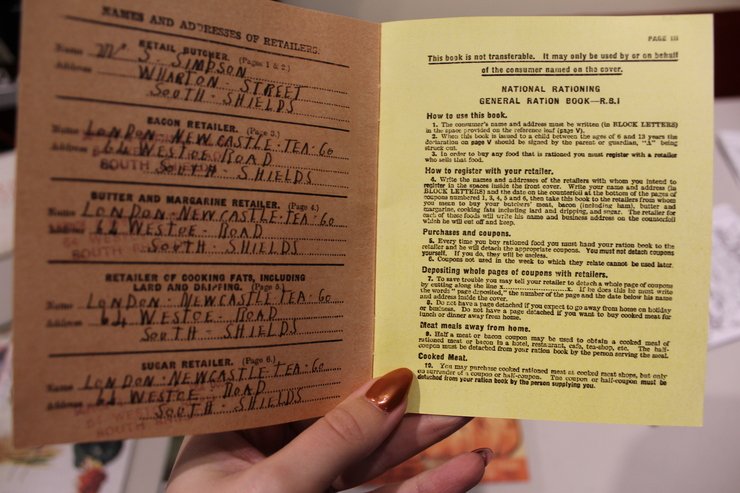 NAMES AND ADDRESSES OF RETAILERS.
RETAIL BUTCHER. (Pages 1 & 2.)
Name Mr S. SIMPSON
Address WHARTON STREET
SOUTH - SHIELDS
BACON RETAILER. (Page 3.)
Name LONDON - NEWCASTLE - TEA - Co
Address 64 WESTOE ROAD
SOUTH - SHIELDS
BUTTER AND MARGARINE RETAILER. (Page 4.)
Name LONDON - NEWCASTLE - TEA - Co
Address 64 WESTOE - ROAD
SOUTH - SHIELDS
RETAILER OF COOKING FATS, INCLUDING
LARD AND DRIPPING. (Page 5.)
Name LONDON - NEWCASTLE - TEA - Co
Address 64 WESTOE - ROAD
SOUTH - SHIELDS
SUGAR RETAILER. (Page 6.)
Name LONDON - NEWCASTLE - TEA - Co
Address 64 WESTOE ROAD
SOUTH - SHIELDS
PAGE III
This book is not transferable. It may only be used by or on behalf
of the consumer named on the cover.
NATIONAL RATIONING
GENERAL RATION BOOK—R.B.1
How to use this book.
1. The consumer's name and address must be written (in BLOCK LETTERS)
in the space provided on the reference leaf (page V).
2. When this book is issued to a child between the ages of 6 and 13 years the
declaration on page V should be signed by the parent or guardian, "A" being
struck out.
3. In order to buy any food that is rationed you must register with a retailer
who sells that food.
How to register with your retailer.
4. Write the names and addresses of the retailers with whom you intend to
register in the spaces inside the front cover. Write your name and address (in
BLOCK LETTERS) and the date on the counterfoil at the bottom of the pages of
coupons numbered 1, 3, 4, 5 and 6, then take this book to the retailers from whom
you mean to buy your butchers' meat, bacon (including ham), butter and
margarine, cooking fats (including lard and dripping), and sugar. The retailer for
each of these foods will write his name and business address on the counterfoil
which he will cut off and keep.
Purchases and coupons.
5. Every time you buy rationed food you must hand your ration book to the
retailer and he will detach the appropriate coupons. You must not detach coupons
yourself. If you do, they will be useless.
6. Coupons not used in the week to which they relate cannot be used later.
Depositing whole pages of coupons with retailers.
7. To save trouble you may tell your retailer to detach a whole page of coupons
by cutting along the line x..............................x. If he does this he must write
the words "page deposited," the number of the page and the date below his name
and address inside the cover.
8. Do not have a page detached if you expect to go away from home on holiday
or business. Do not have a page detached if you want to buy cooked meat for
lunch or dinner away from home.
Meat meals away from home.
9. Half a meat or bacon coupon may be used to obtain a cooked meal of
rationed meat or bacon in a hotel, restaurant, café, tea-shop, etc. The half-
coupon must be detached from your ration book by the person serving the meal.
Cooked Meat.
10. You may purchase cooked rationed meat at cooked meat shops, but only
on surrender of a coupon or half-coupon. The coupon or half-coupon must be
detached from your ration book by the person supplying you.